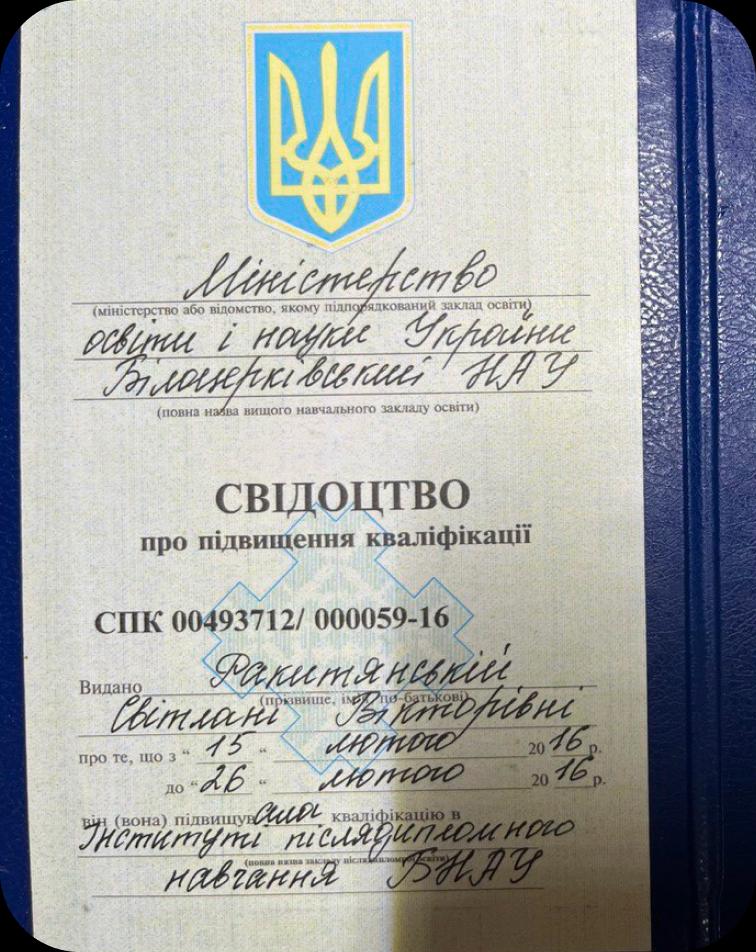 Міністерство
(міністерство або відомство, якому підпорядкований заклад освіти)
освіти і науки України
Білоцерківський НАУ
(повна назва вищого навчального закладу освіти)
СВІДОЦТВО
про підвищення кваліфікації
СПК 00493712/ 000059-16
Видано Ракитянській
(прізвище, ім'я, по-батькові)
Світлані Вікторівні
про те, що з “ 15 “ лютого 20 16 р.
до “ 26 “ лютого 20 16 р.
він (вона) підвищувала кваліфікацію в
Інституті післядипломного
(повна назва закладу післядипломної освіти)
навчання БНАУ